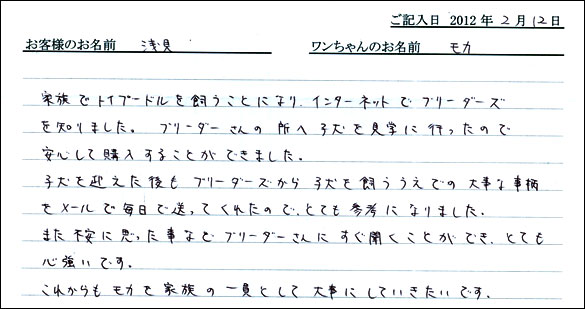 ご記入日 2012 年 2 月 12 日
お客様のお名前 浅見 ワンちゃんのお名前 モカ
家族でトイプードルを飼うことになり、インターネットでブリーダーズ
を知りました。 ブリーダーさんの所へ子犬を見学に行ったので
安心して購入することができました。
子犬を迎えた後もブリーダーズから子犬を飼ううえでの大事な事柄
をメールで毎日で送ってくれたので、とても参考になりました。
また不安に思った事などブリーダーさんにすぐ聞くことができ、とても
心強いです。
これからもモカを家族の一員として大事にしていきたいです。